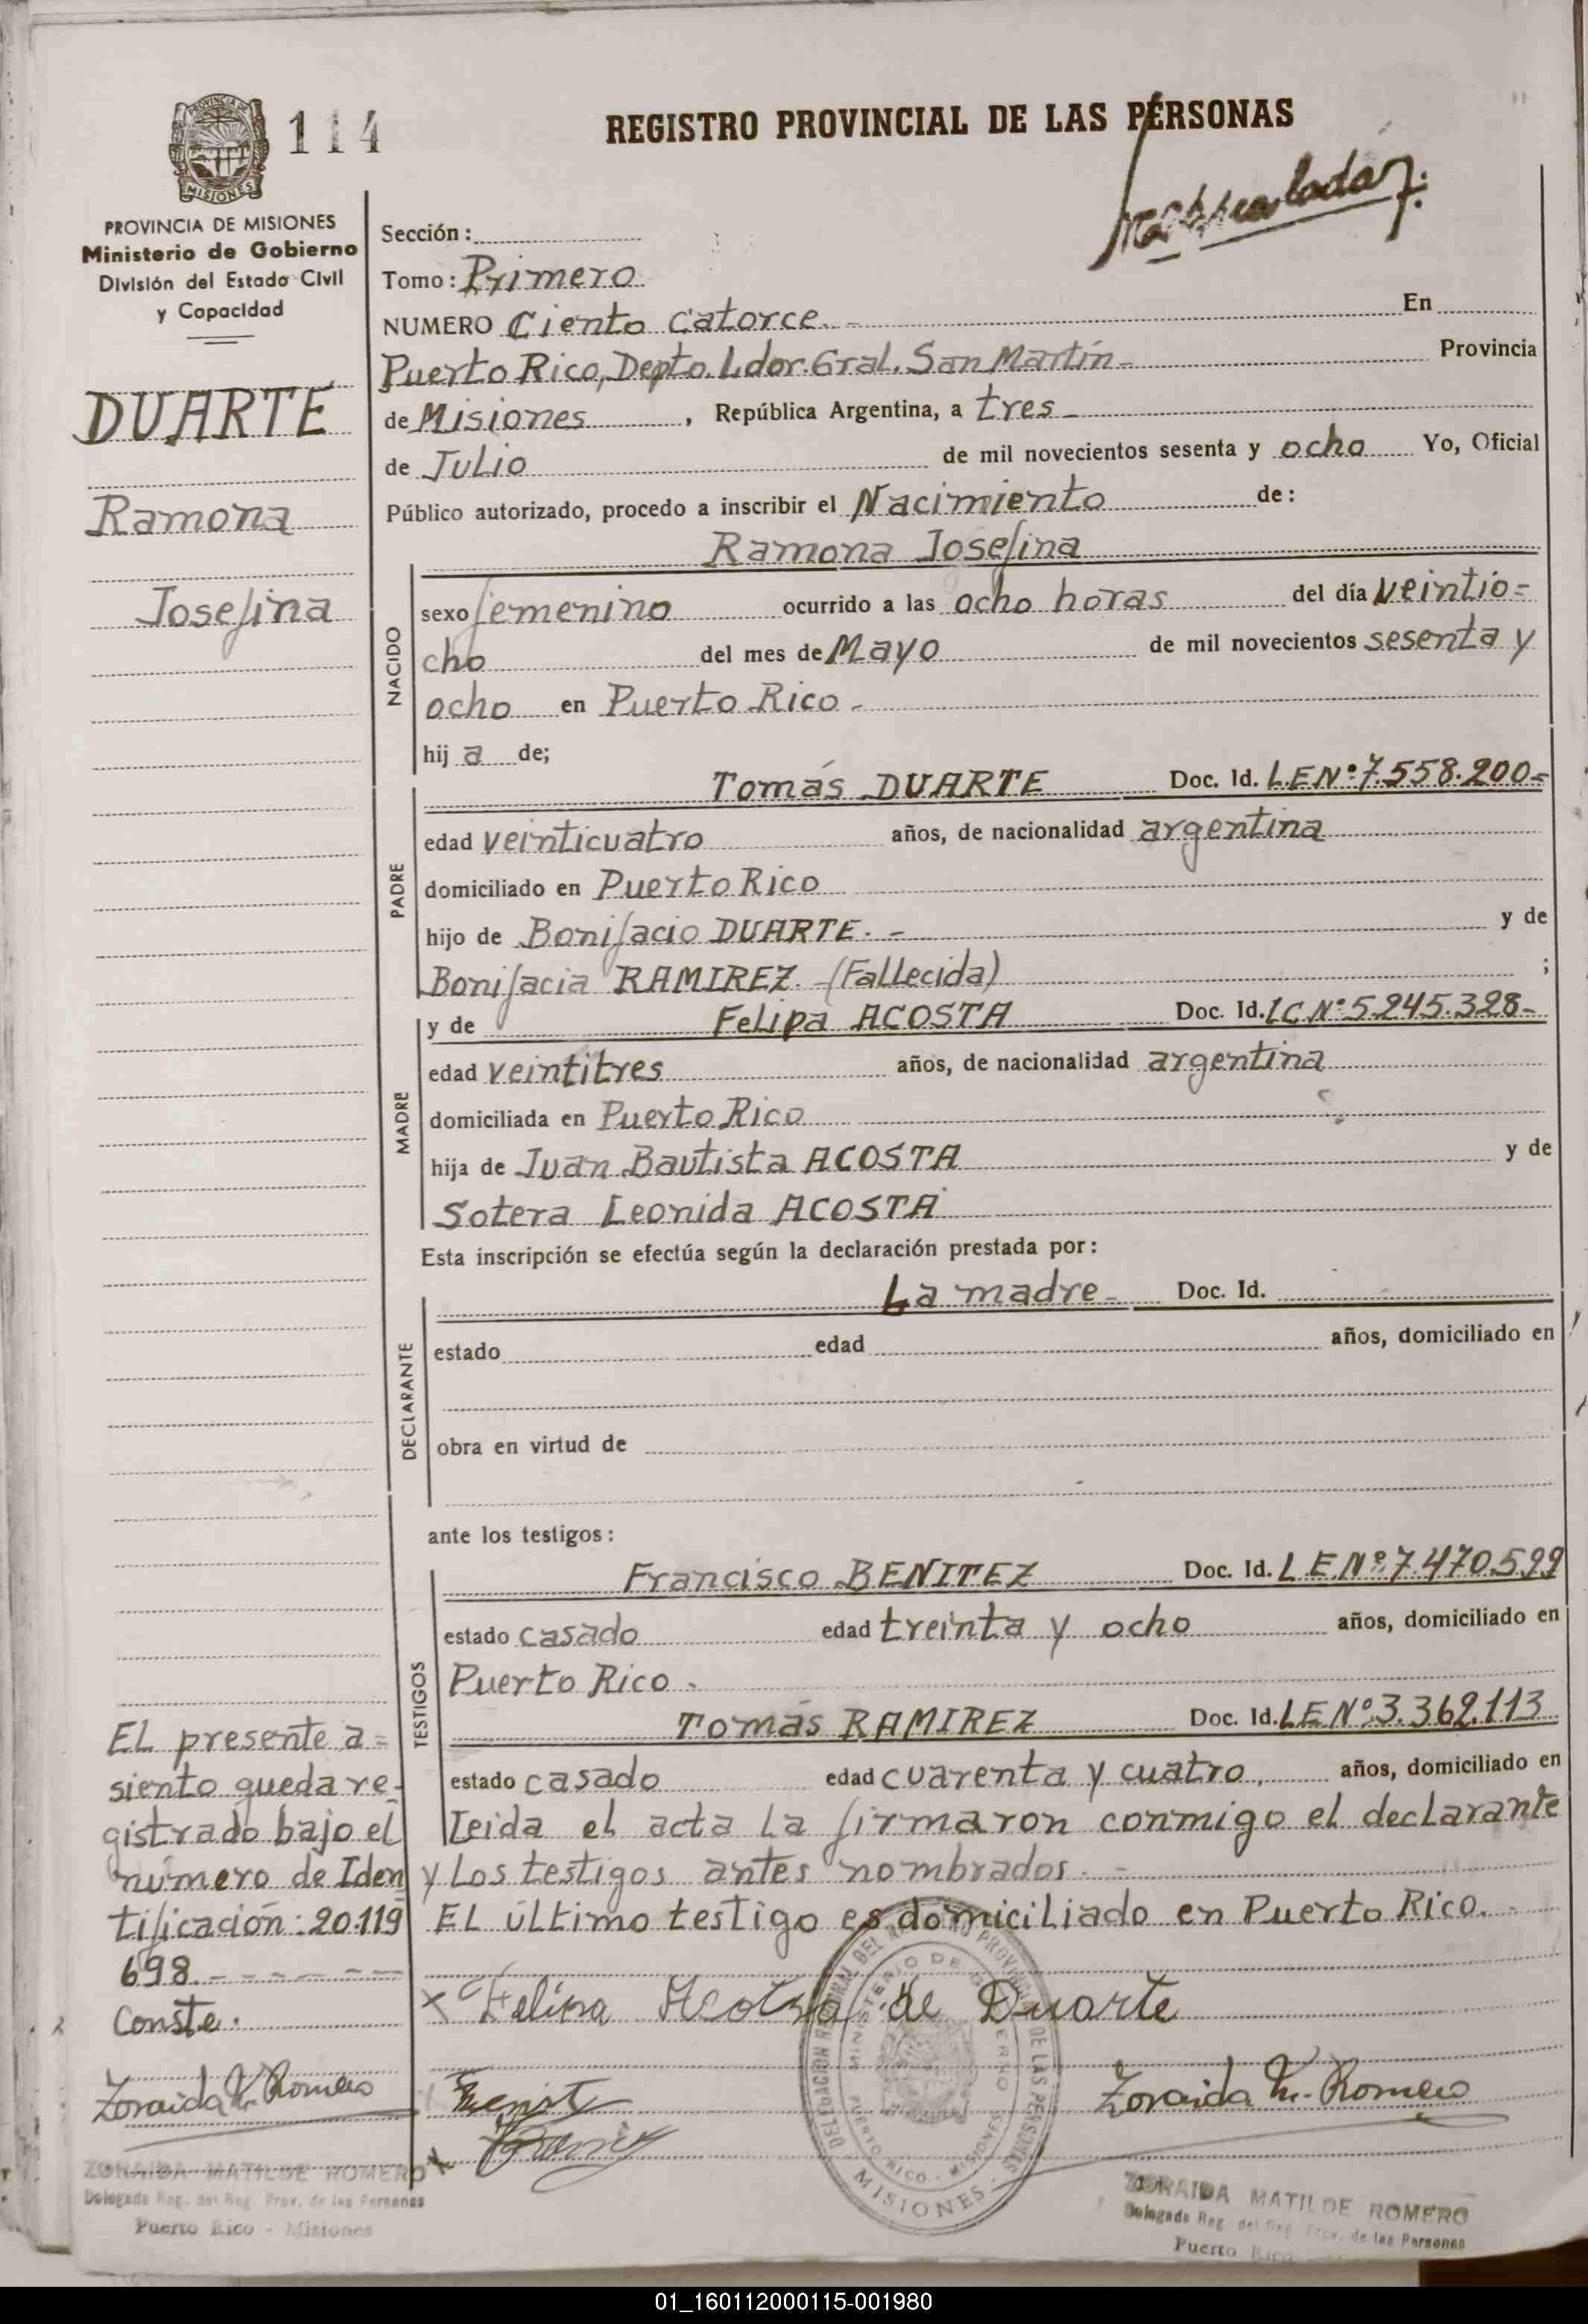 114
REGISTRO PROVINCIAL DE LAS PERSONAS
PROVINCIA DE
MISIONES
PROVINCIA DE MISIONES
Ministerio de Gobierno
División del Estado Civil
y Capacidad
DUARTE
Ramona
Josefina
Sección:
Tomo: Primero
NUMERO Ciento catorce. - En
Puerto Rico, Depto. Ldor. Gral. San Martín - Provincia
de Misiones, República Argentina, a tres -
de Julio de mil novecientos sesenta y ocho Yo, Oficial
Público autorizado, procedo a inscribir el Nacimiento de:
Ramona Josefina
NACIDO
sexo femenino ocurrido a las ocho horas del día veintio=
cho del mes de Mayo de mil novecientos sesenta y
ocho en Puerto Rico -
hij a de;
PADRE
Tomás DUARTE Doc. Id. LENº 7.558.200=
edad veinticuatro años, de nacionalidad argentina
domiciliado en Puerto Rico
hijo de Bonifacio DUARTE. - y de
Bonifacia RAMIREZ. (Fallecida) ;
MADRE
y de Felipa ACOSTA Doc. Id. LC Nº 5.245.328-
edad veintitres años, de nacionalidad argentina
domiciliada en Puerto Rico
hija de Juan Bautista ACOSTA y de
Sotera Leonida ACOSTA
Esta inscripción se efectúa según la declaración prestada por:
DECLARANTE
La madre - Doc. Id.
estado edad años, domiciliado en
obra en virtud de
ante los testigos:
TESTIGOS
Francisco BENITEZ Doc. Id. LE.Nº 7.470.599
estado casado edad treinta y ocho años, domiciliado en
Puerto Rico.
Tomás RAMIREZ Doc. Id. LE Nº 3.362.113
estado casado edad cuarenta y cuatro, años, domiciliado en
Leida el acta la firmaron conmigo el declarante
y los testigos antes nombrados. -
El último testigo es domiciliado en Puerto Rico. -
EL presente a=
siento queda re-
gistrado bajo el
número de Iden
tificación: 20.119
698.-------
Conste.
Felipa Acosta de Duarte
Zoraida M. Romero
Zoraida M. Romero
ZORAIDA MATILDE ROMERO
Delegada Reg. del Reg. Prov. de las Personas
Puerto Rico - Misiones
ZORAIDA MATILDE ROMERO
Delegada Reg. del Reg. Prov. de las Personas
Puerto Rico
MINISTERIO DE GOBIERNO
PUERTO RICO - MISIONES
MISIONES
01_160112000115-001980